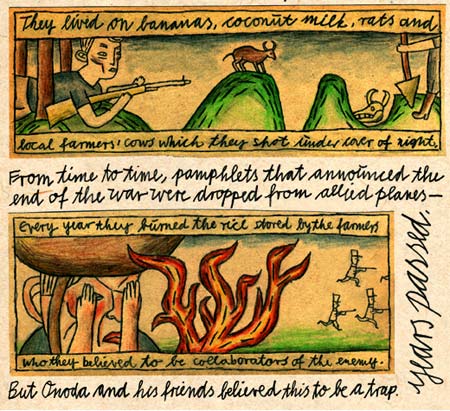 They lived on bananas, coconut milk, rats and
local farmers' cows which they shot under cover of night.
From time to time, pamphlets that announced the
end of the war were dropped from allied planes—
years passed.
Every year they burned the rice stored by the farmers
who they believed to be collaborators of the enemy.
But Onoda and his friends believed this to be a trap.